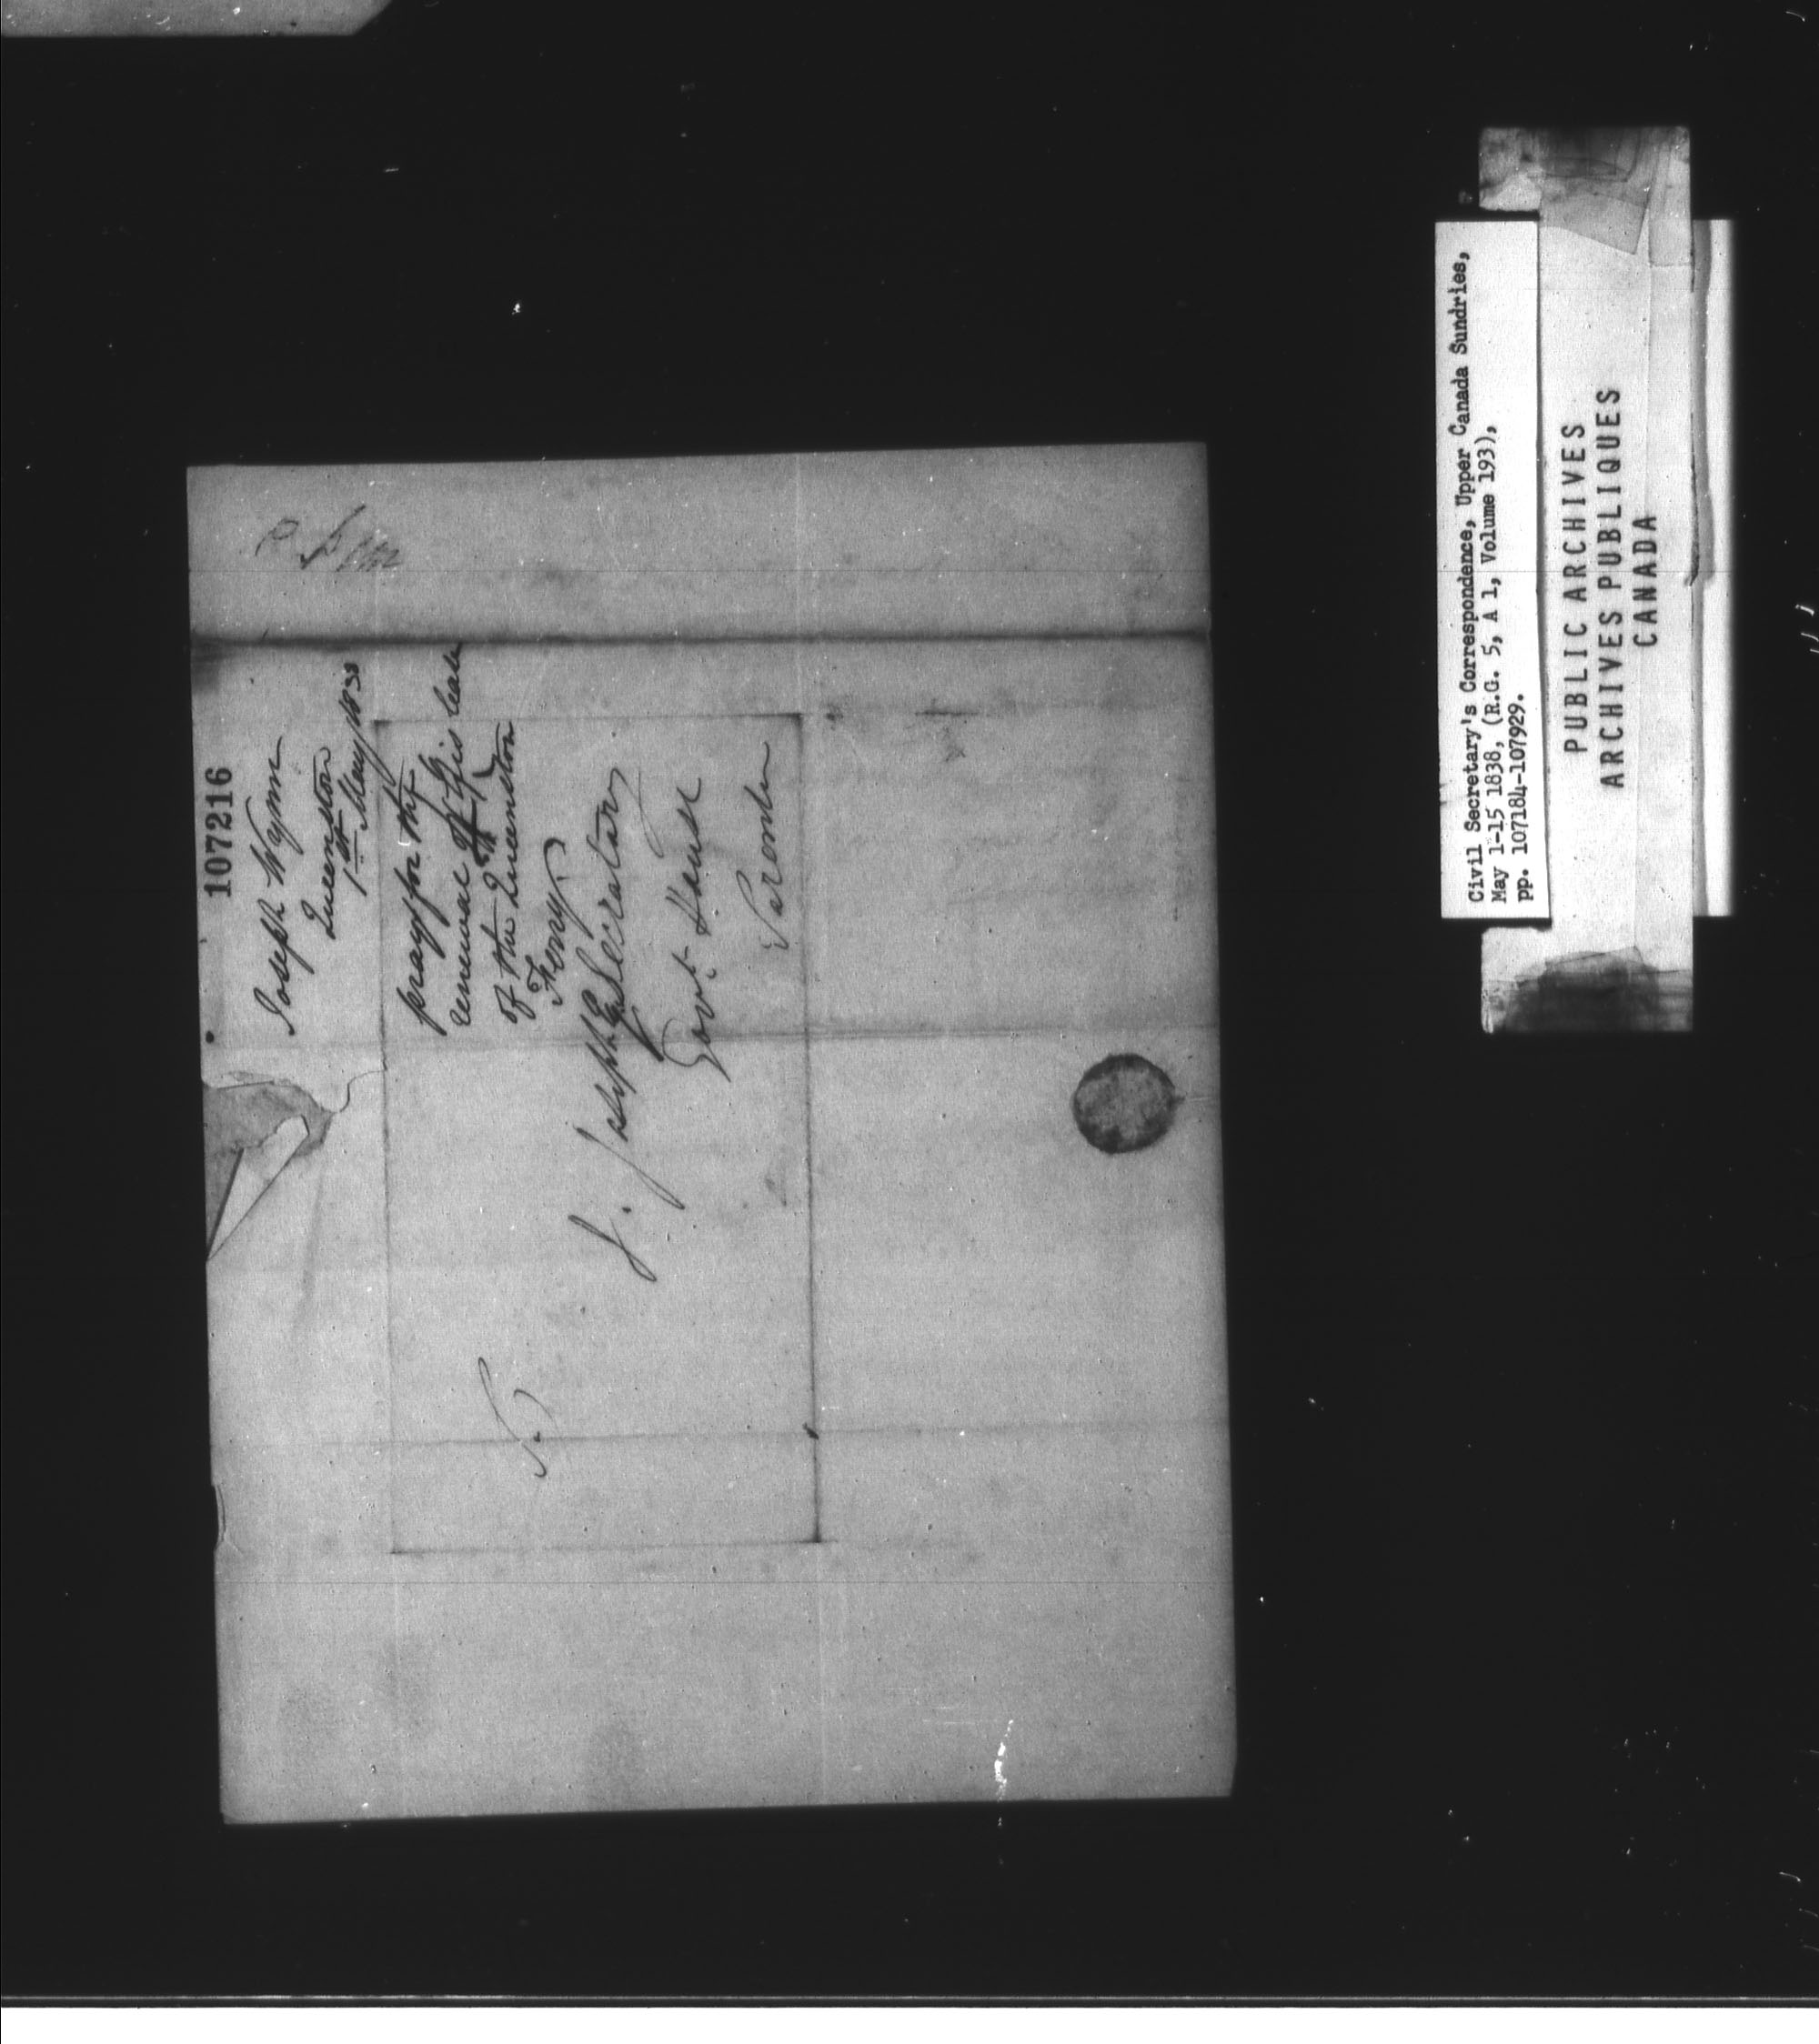 107216
Joseph Wynn
Queenston
1st May 1838
prays for the
renewal of his lease
of the Queenston
Ferry
J. Joseph Esq Secratary
Govt. House
Toronto
Civil Secretary's Correspondence, Upper Canada Sundries,
May 1-15 1838, (R.G. 5, A 1, Volume 193),
pp. 107184-107929.
PUBLIC ARCHIVES
ARCHIVES PUBLIQUES
CANADA